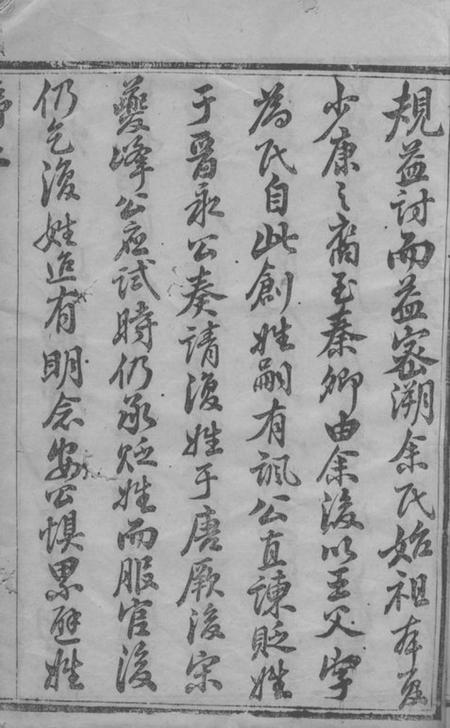 規益討而益密溯余氏始祖本夏
少康之裔至秦卿由余後以王父字
為氏自此創姓嗣有諷公直諫貶姓
于晋永公奏請復姓于唐厥後宗
夔峰公應試時仍承貶姓而服官後
仍乞復姓迨有明念安公惧累避姓